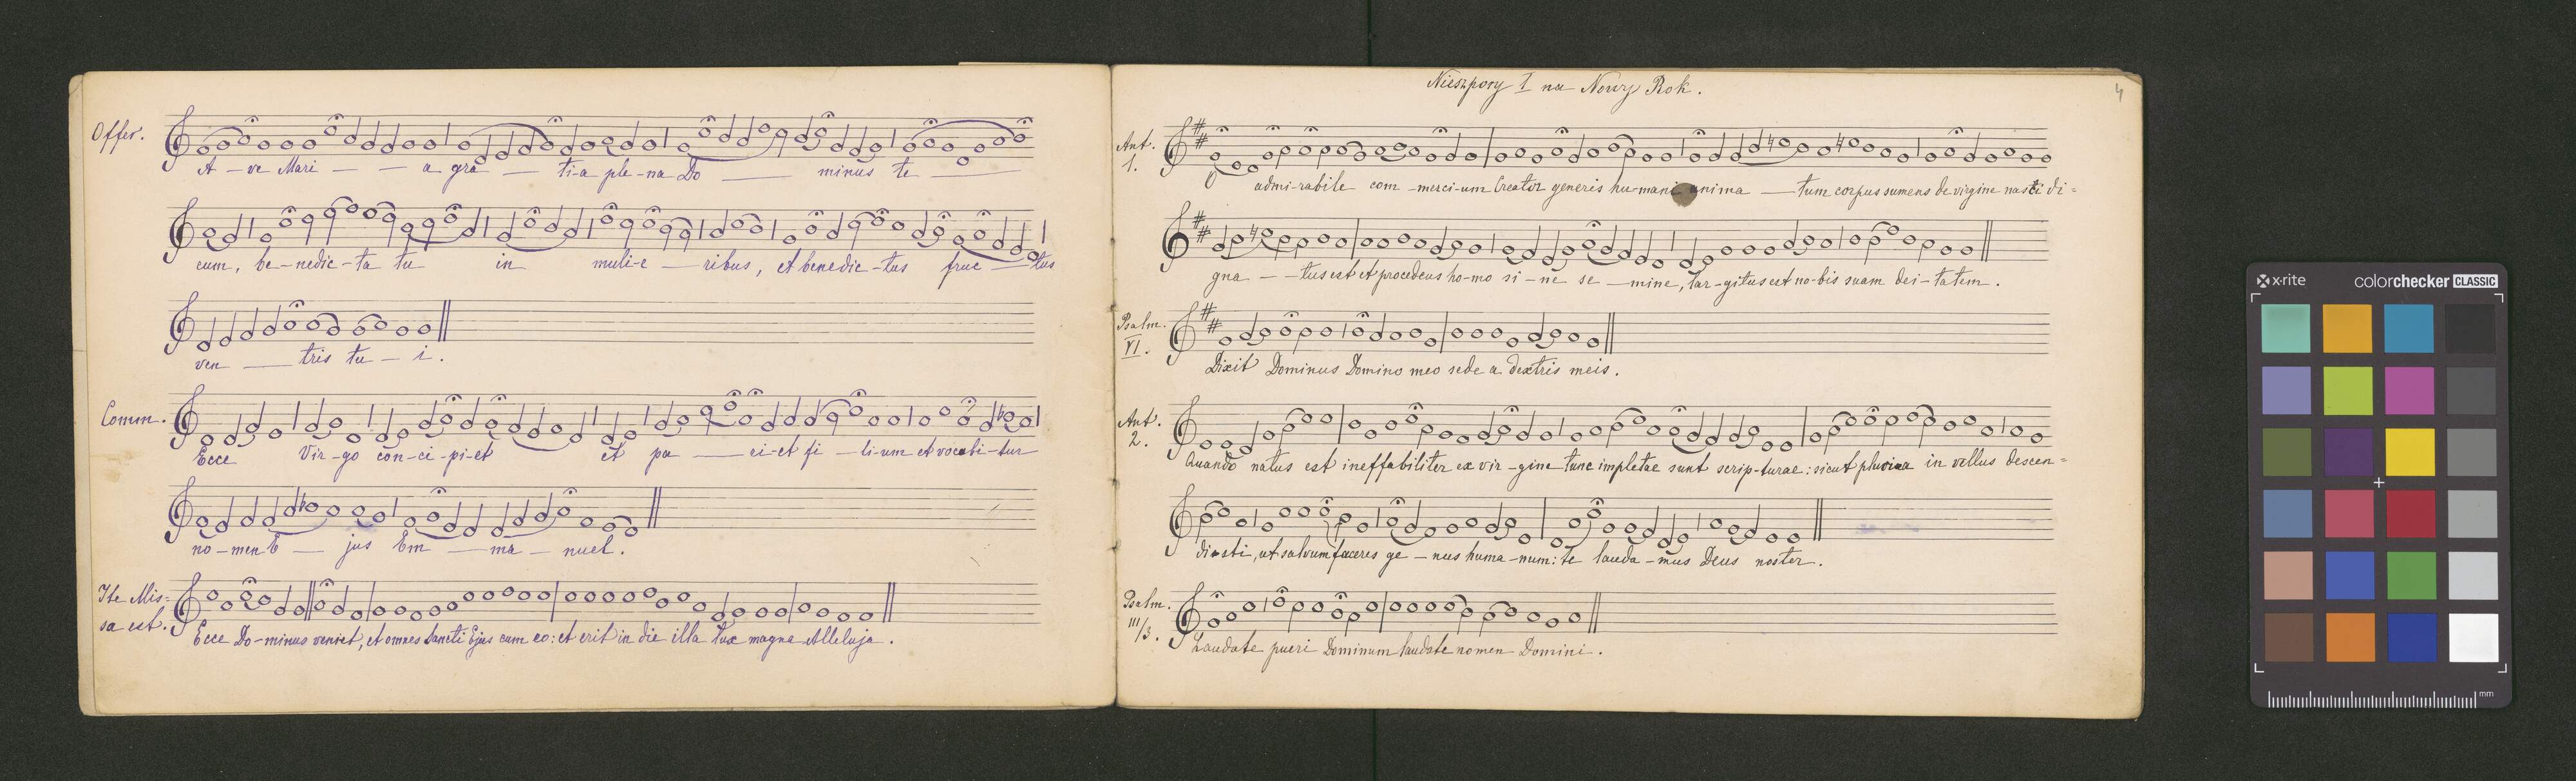 Offer.
A - ve Mari - - a gra - ti-a ple-na Do - minus te -
cum, be-nedic-ta tu in muli-e - ribus, et benedic-tus fruc - tus
ven - tris tu - i.
Comm.
Ecce Vir-go con-ci-pi-et et pa - ri-et fi - li-um et vocabi-tur
no-men E - jus Em - ma - nuel.
Ite Mis-
sa est.
Ecce Do-minus veniet, et omnes Sancti Ejus cum eo: et erit in die illa lux magna Alleluja.
Nieszpory I na Nowy Rok.
4
Ant.
1.
O admi-rabile com-merci-um Creator generis hu-mani anima - tum corpus sumens de virgine nasci di=
gna - - tus est et procedens ho-mo si-ne se - mine, lar-gitus est no-bis suam dei-tatem.
Psalm.
VI.
Dixit Dominus Domino meo sede a dextris meis.
Ant.
2.
Quando natus est ineffabiliter ex vir-gine tunc impletae sunt scrip-turae: sicut pluvia in vellus descen=
disti, ut salvum faceres ge - nus huma-num: te lauda-mus Deus noster.
Psalm.
III/3.
Laudate pueri Dominum laudate nomen Domini.
x-rite
colorchecker CLASSIC
mm